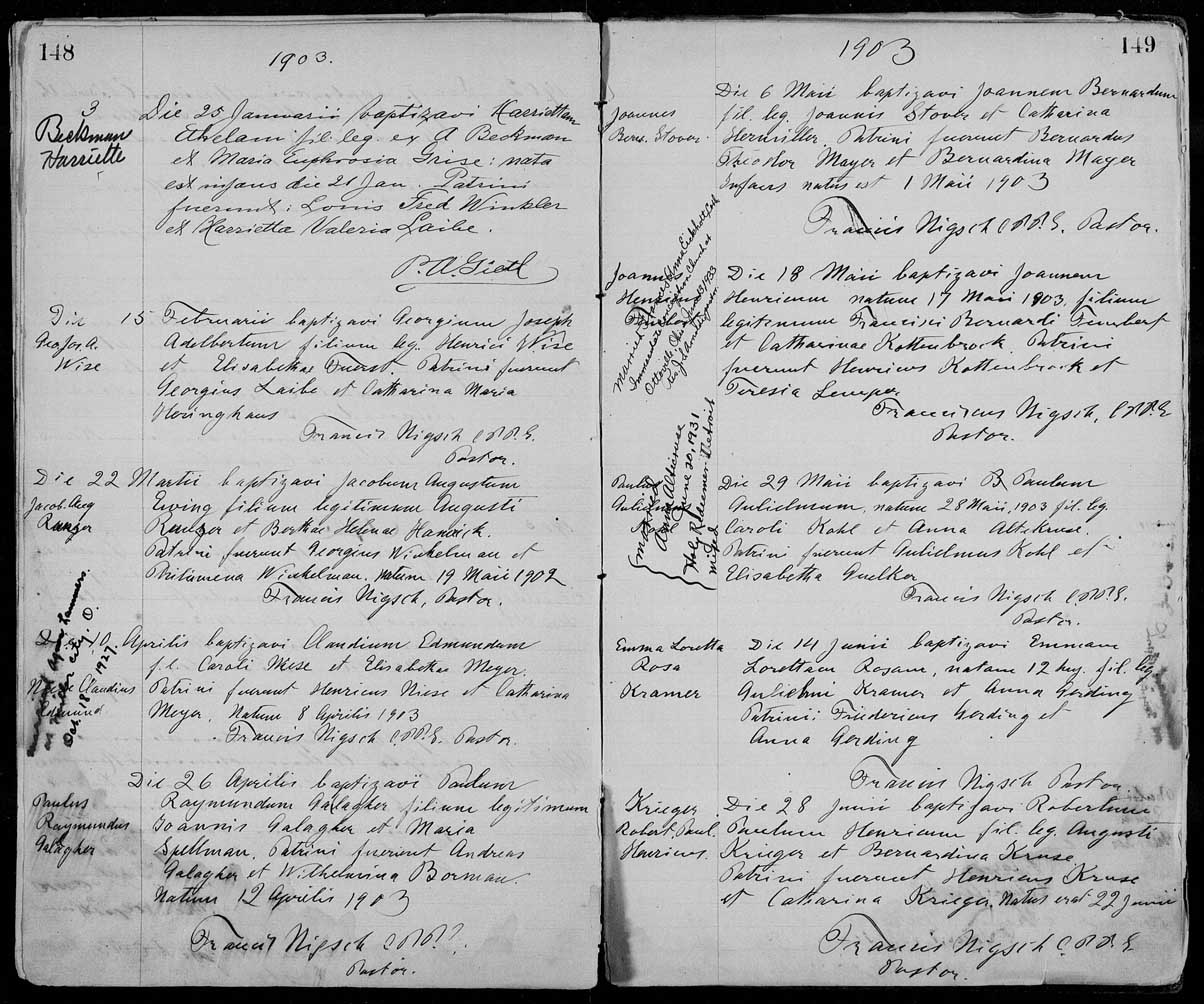 148
1903.
3
Beckman
Harriette
Die 25 Januarii baptizavi Harriettam
Ethelam fil. leg. ex A Beckman
et Maria Euphrosia Grise: nata
est infans die 21 Jan. Patrini
fuerunt: Louis Fred Winkler
et Harrietta Valeria Laibe.
P. A. Gietl
Die 15 Februarii baptizavi Georgium Joseph
Geo Jos. A.
Wise
Adelbertum filium leg. Henrici Wise
et Elisabethae Fuerst. Patrini fuerunt
Georgius Laibe et Catharina Maria
Hovinghaus
Francis Nigsch C.PP.S.
Pastor.
Die 22 Martii baptizavi Jacobum Augustum
Jacob. Aug
Ranzer
Ewing filium legitimum Augusti
Ranzer et Berthae Helenae Hanick.
Patrini fuerunt Georgius Winkelman et
Philumena Winkelman. Natum 19 Maii 1902
Francis Nigsch, Pastor.
Die 10 Aprilis baptizavi Claudium Edmundum
Niese Claudius
Edmund
married Agnes Lammers.
Oct. 18 1927.
f.l. Caroli Niese et Elisabethae Meyer.
Patrini fuerunt Henricus Niese et Catharina
Meyer. Natum 8 Aprilis 1903
Francis Nigsch C.PP.S. Pastor.
Die 26 Aprilis baptizavi Paulum
Paulus
Raymundus
Galagher
Raymundum Galagher filium legitimum
Joannis Galagher et Maria
Spellman. Patrini fuerunt Andreas
Galagher et Wilhelmina Borman.
Natum 12 Aprilis 1903
Francis Nigsch C.PP.S.
Pastor.
149
1903
Joannes
Bern. Stover
Die 6 Maii baptizavi Joannem Bernardum
fil. leg. Joannis Stover et Catharina
Hernviller. Patrini fuerunt Bernardus
Theodor Mayer et Bernardina Mayer
Infans natus est 1 Maii 1903
Francis Nigsch C.PP.S. Pastor.
Joannes
Henricus
Die 18 Maii baptizavi Joannem
Henricum natum 17 Maii 1903, filium
legitimum Francisci Bernardi
et Catharinae Kottenbrock. Patrini
fuerunt Henricus Kottenbrock et
Teresia Lemper
Franciscus Nigsch, C.PP.S
Pastor.
Paulus
Gulielmus
married
Anna Alticruse
June 20, 1931
Holy Redeemer Detroit
Mich
Die 29 Maii baptizavi Paulum
Gulielmum, natum 28 Maii, 1903 fil. leg.
Caroli Kohl et Anna Altekruse.
Patrini fuerunt Gulielmus Kohl et
Elisabetha Guelker
Francis Nigsch C.PP.S.
Pastor.
Emma Loretta
Rosa
Kramer
Die 14 Junii baptizavi Emmam
Lorettam Rosam, natam 12 huj. fil. leg
Gulielmi Kramer et Anna Gerding
Patrini: Friedericus Gerding et
Anna Gerding
Francis Nigsch Pastor
Krieger
Robert Paul.
Henricus.
Die 28 Junii baptizavi Robertum
Paulum Henricum fil. leg. Augusti
Krieger et Bernardina Kruse
Patrini fuerunt Henricus Kruse
et Catharina Krieger, Natus erat 22 Junii
Francis Nigsch C.PP.S
Pastor.